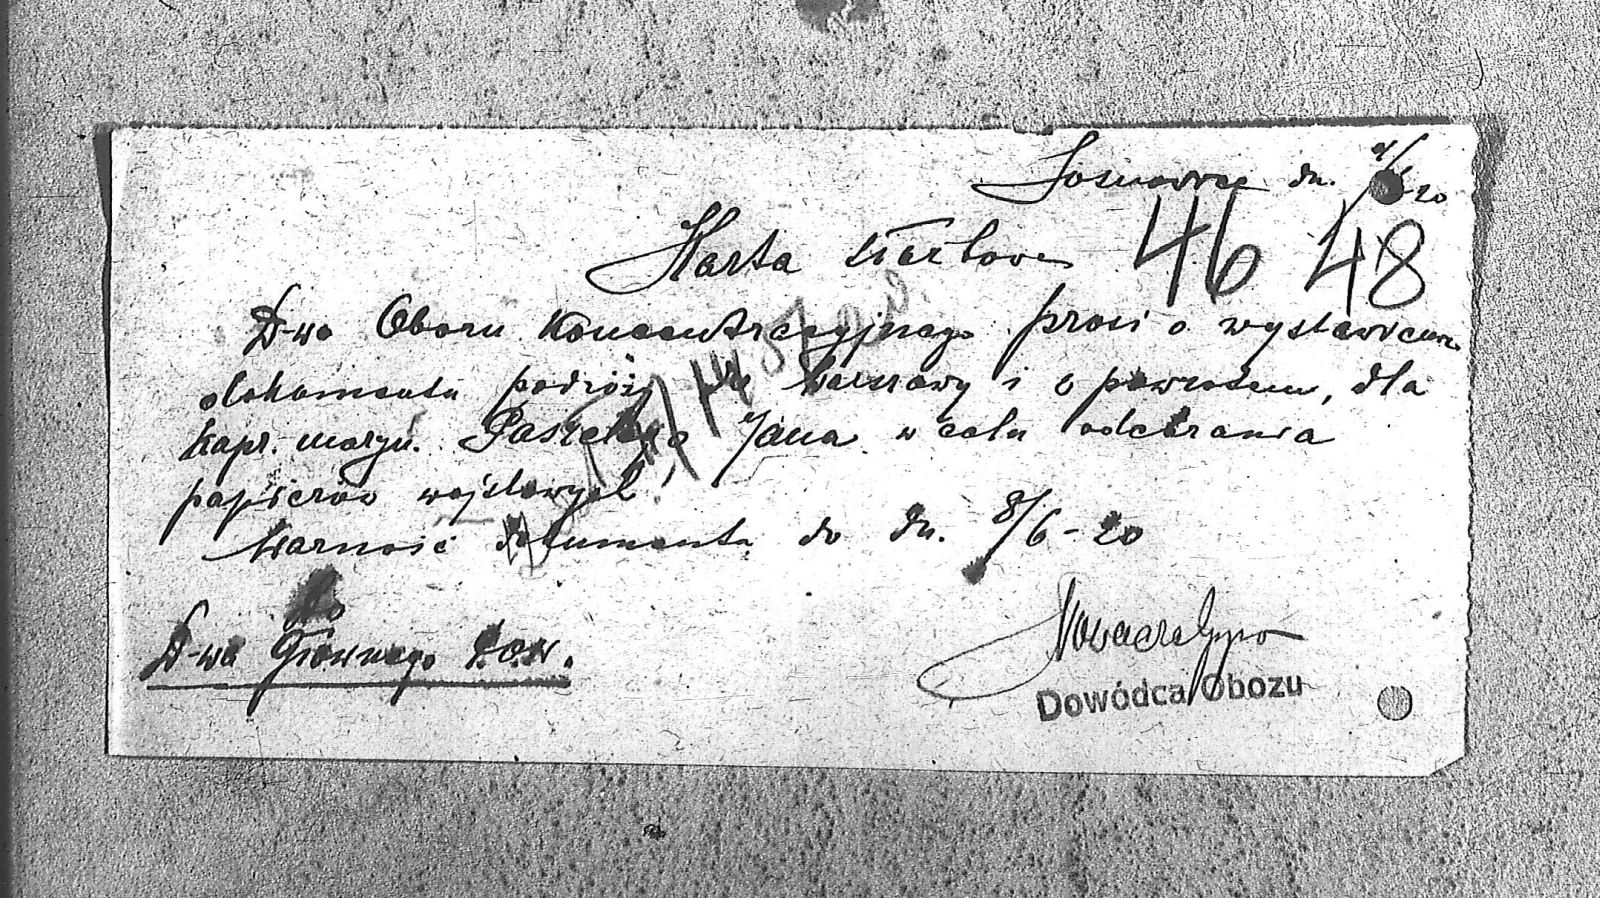 Sosnowice dn. /6 20
Karta służbowa 46 48
D-wo Obozu Koncentracyjnego prosi o wystawienie
dokumentu podróży do Warszawy i z powrotem, dla
kapr. maryn. Jana w celu odebrania
papierów wojskowych.
Warność dokumentu do dn. 8/6-20
Do
D-wa Głównego P.O.W.
Dowódca Obozu